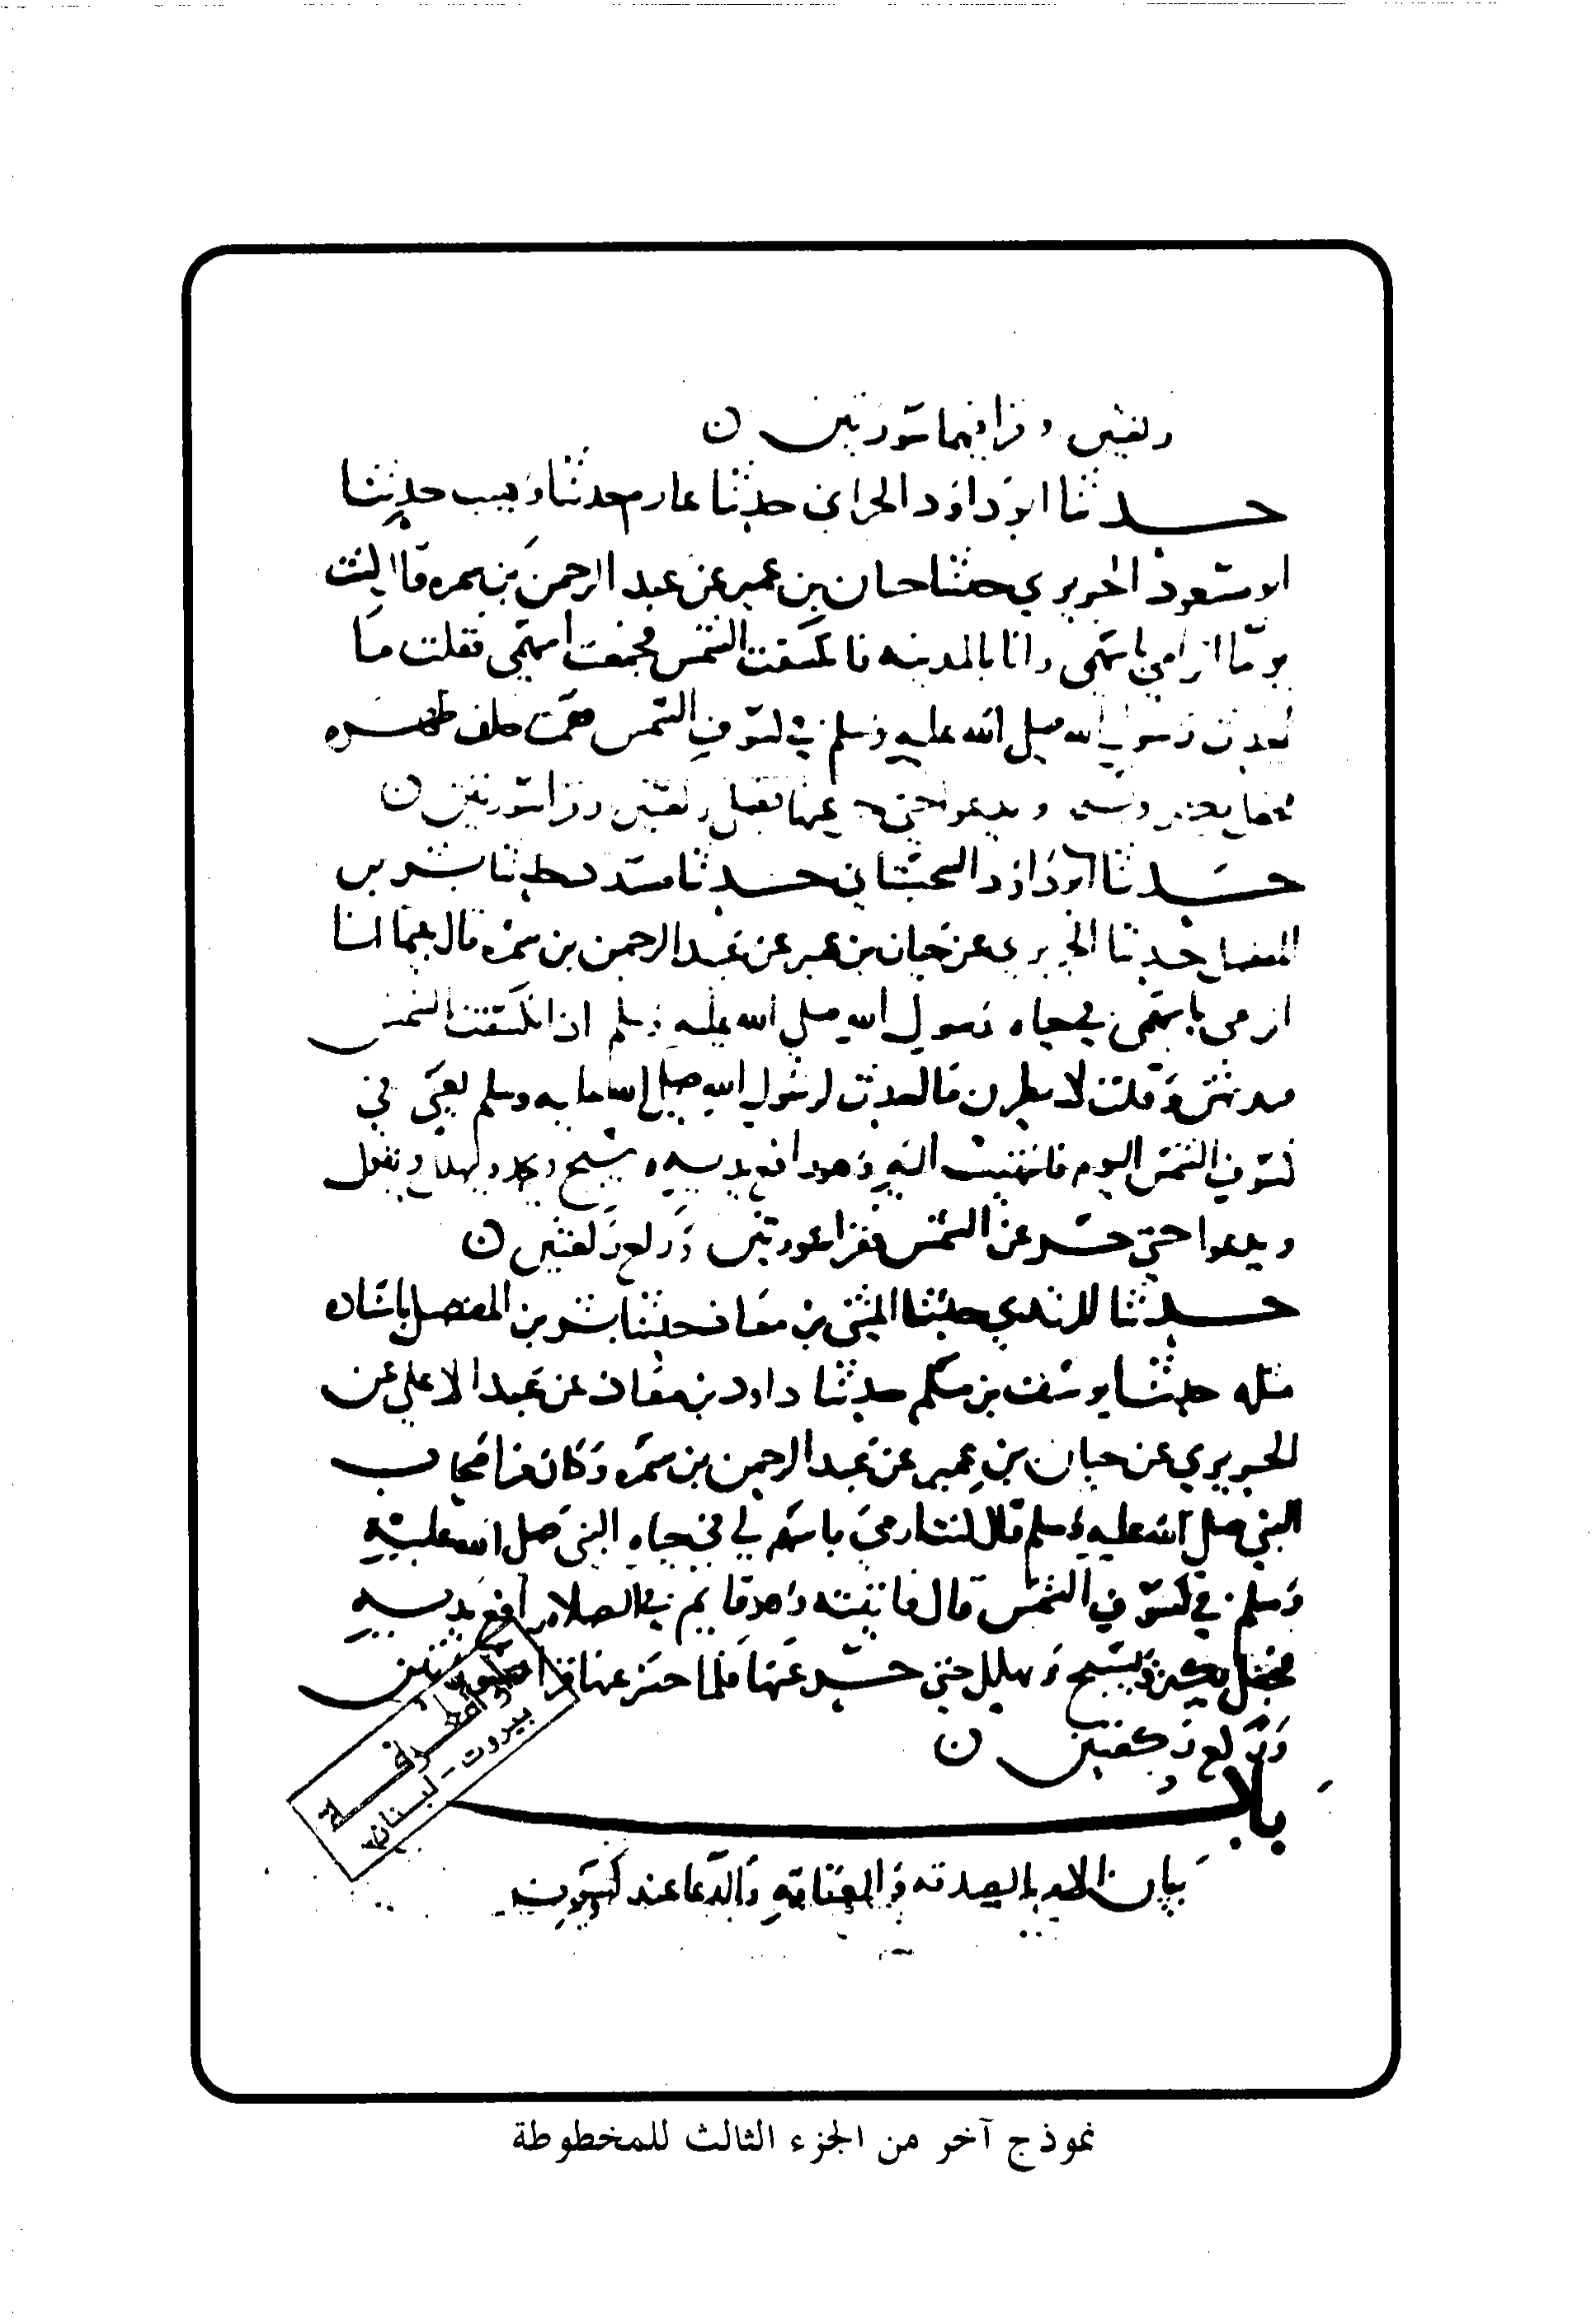 ركعتين وقرا فيهما سورتين ن
حدثنا ابو داود الحراني حدثنا عارم حدثنا وهيب حدثنا
ابو مسعود الجريري حدثنا حيان بن عمير عن عبد الرحمن بن سمره قال كنت
يوما ارامي باسهمي وانا بالمدينه فانكسفت الشمس فجمعت اسهمي فقلت ما
لرسول الله صلى الله عليه وسلم في كسوف الشمس فقمت خلف ظهره
ويدعوا حتى عنها فصلى ركعتين وقرا سورتين ن
حدثنا ابو داود السجستاني حدثنا مسدد حدثنا بشر بن
المفضل حدثنا الجريري عن حيان بن عمير عن عبد الرحمن بن سمره قال بينما انا
ارمي باسهمي في حياه رسول الله صلى الله عليه وسلم اذ انكسفت الشمس
فنبذتهن وقلت لانظرن ما لرسول الله صلى الله عليه وسلم في
كسوف الشمس اليوم فانتهيت اليه وهو رافع يديه يسبح
ويدعوا حتى حسر عن الشمس فقرا سورتين وركع ركعتين ن
حدثنا حدثنا المثنى بن معاذ حدثنا بشر بن المفضل باسناده
مثله حدثنا يوسف بن مسلم حدثنا داود بن معاذ عن عبد الاعلى عن
الجريري عن حيان بن عمير عن عبد الرحمن بن سمره وكان من اصحاب
النبي صلى الله عليه وسلم قال كنت ارمي باسهم لي في حياه النبي صلى الله عليه
وسلم في كسوف الشمس قال فاتيته وهو قايم في الصلاه رافع يديه
فجعل يكبر ويسبح ويهلل حتى حسر عنها فلما حسر عنها قرا سورتين
وركع ركعتين ن
باب
بيان الامر بالصدقه والعتاقه والدعا عند كسوف
بيروت - لبنان
نموذج آخر من الجزء الثالث للمخطوطة